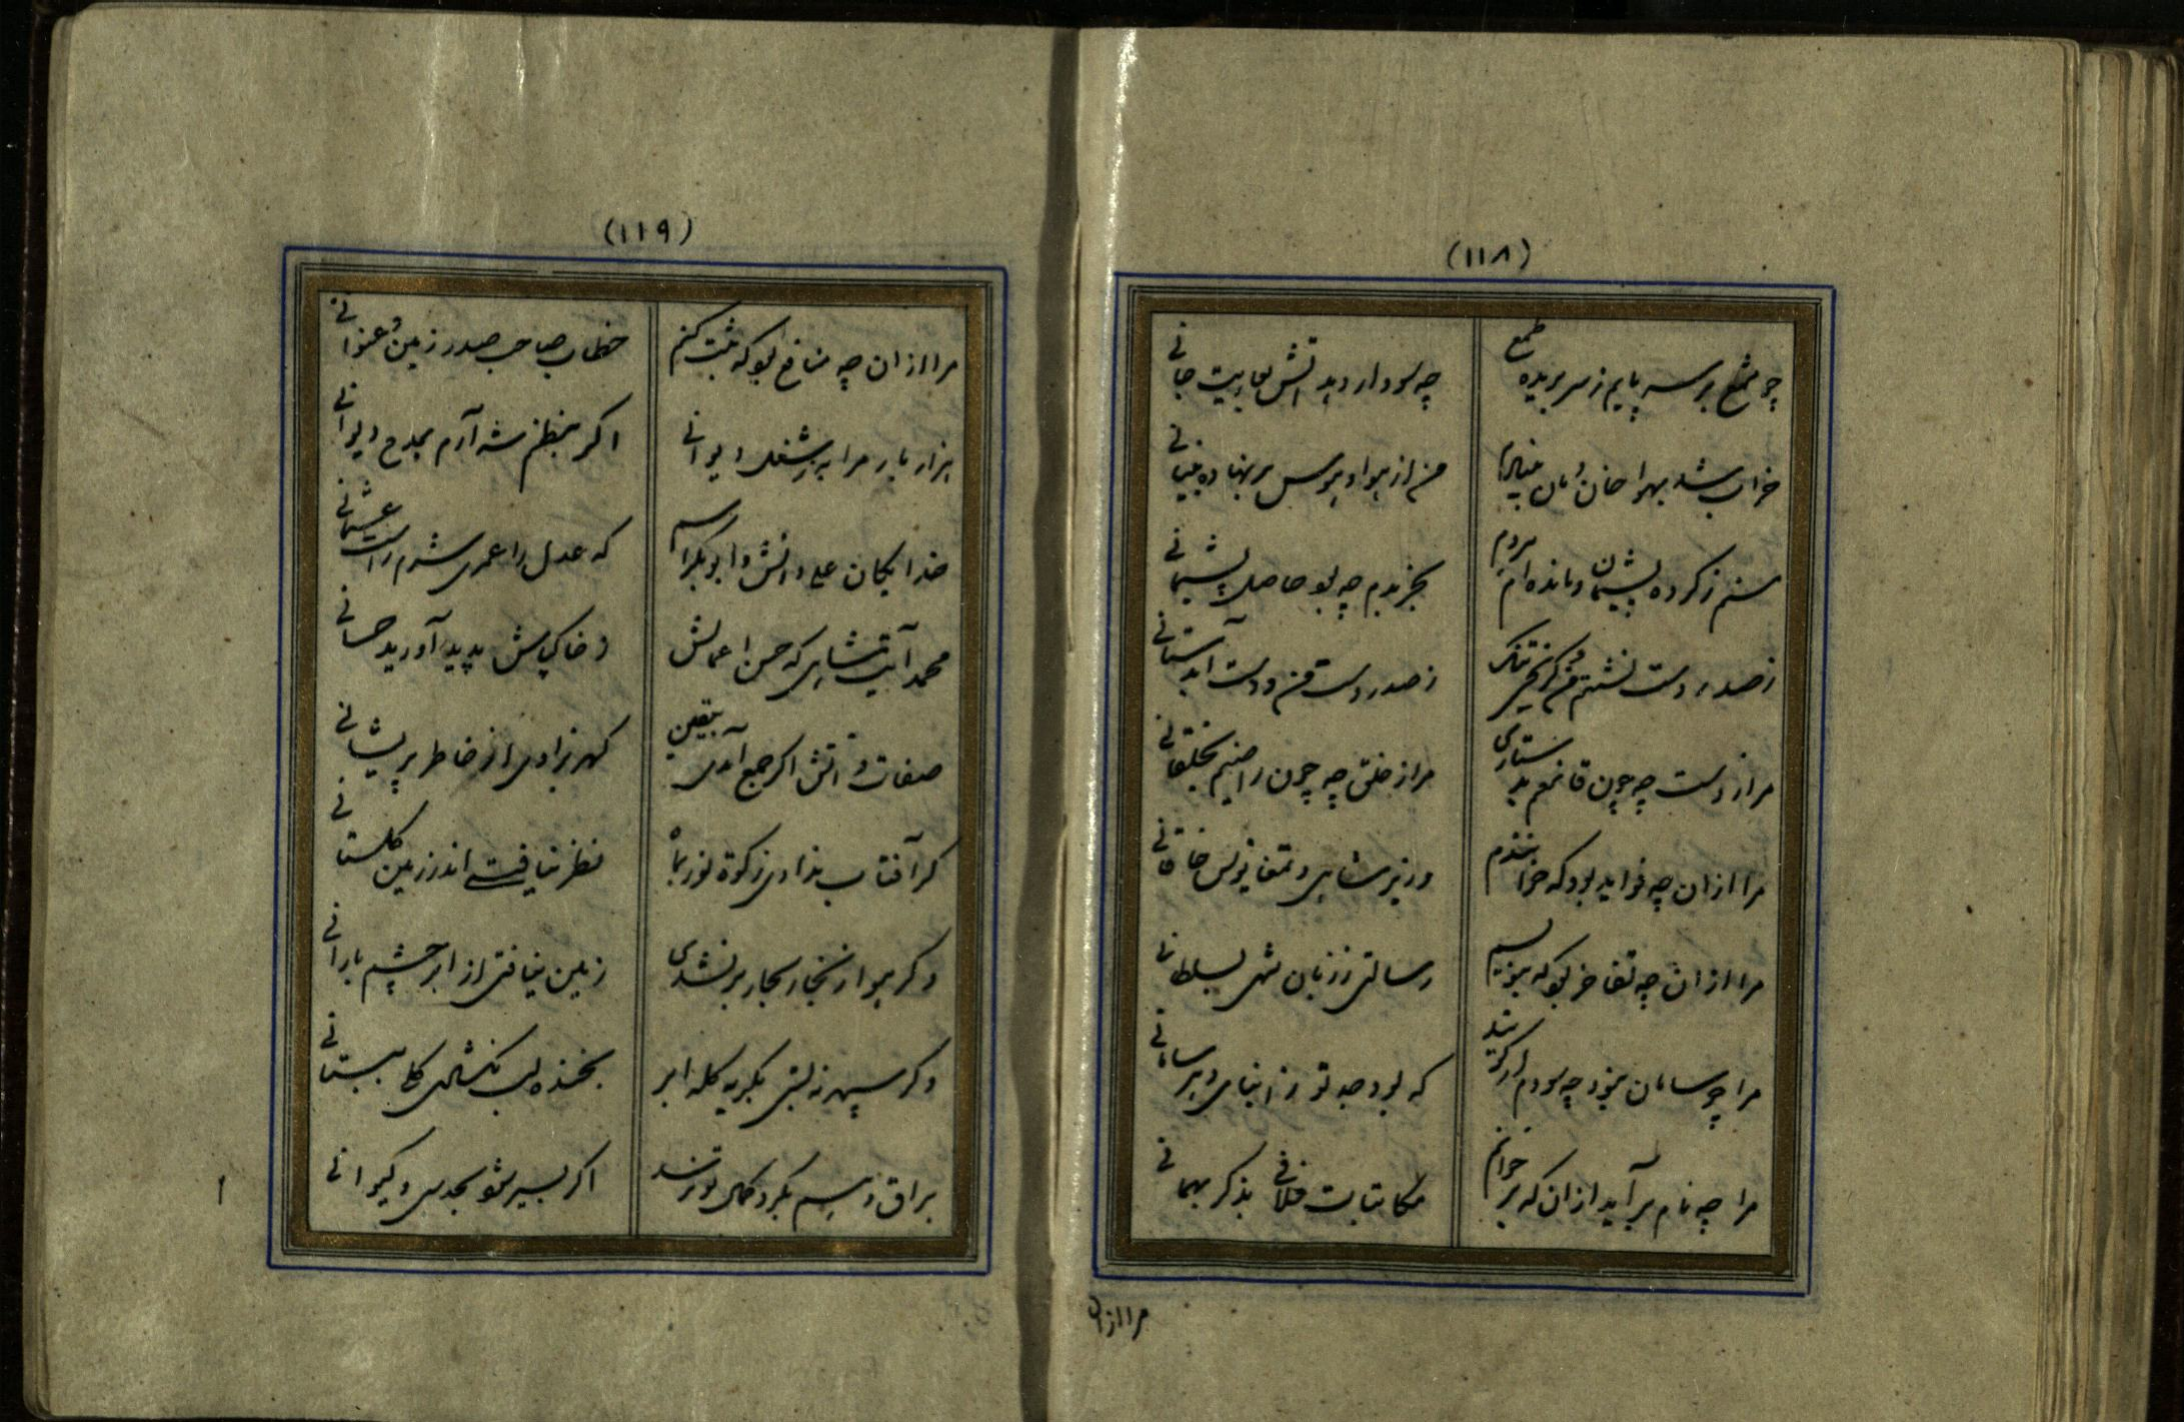 (۱۱۸)
چو شمع بر سر پایم ز سر بریده طمع
چه سود ار دهد آتش بعاریت جانی
خراب شد بهوا خان و مان
من از هوا و هوس بر نهاده
منم ز کرده پشیمان و مانده‌ام مردم
بجز ندم چه بود حاصل پشیمانی
ز صدر دست نشستم
ز صدر دست من و دست
مرا ز دست چه چون قانعم
مرا ز خلق چه چون راضیم بخلقانی
مرا از آن چه فواید بود که خوانندم
وزیر شاهی و تمغا نویس خاقانی
مرا از آن چه تفاخر بود که بنویسم
رسالتی ز زبان شهی بسلطانی
مرا چو سامان نبود چه سودم ار گویند
که بود جد تو ز ابنای دهر سامانی
مرا چه نام برآید از آن که بر خوانم
مکاتبات فلانی بذکر بهمانی
مرا از آن
(۱۱۹)
مرا از آن چه منافع بود که ثبت کنم
خطاب صاحب صدر زمین و عنوانی
هزار بار مرا به ز شغل ایوانی
اگر بنظم شه آرم بمدح دیوانی
خدایگان علی دانش و ابوبکر اسم
که عدل را عمری شرم راست عثمانی
محمد آیت شاهی که حسن اعمالش
ز خاک پاش پدید آورید حسانی
صفات ذاتش اگر جمع آمدی بیقین
گهر نزادی از خاطر پریشانی
گر آفتاب ندادی زکوة نور بماه
نظر نیافتی اندر زمین گلستانی
وگر هوا ز بخار بحار بر نشدی
زمین نیافتی از ابر چشم بارانی
وگر سپهر نه بینی بگریه کله ابر
بخنده لب نگشادی گل بستانی
براق وهم بگرد کمال تو نرسد
اگر بسیر شود جدی و کیوانی